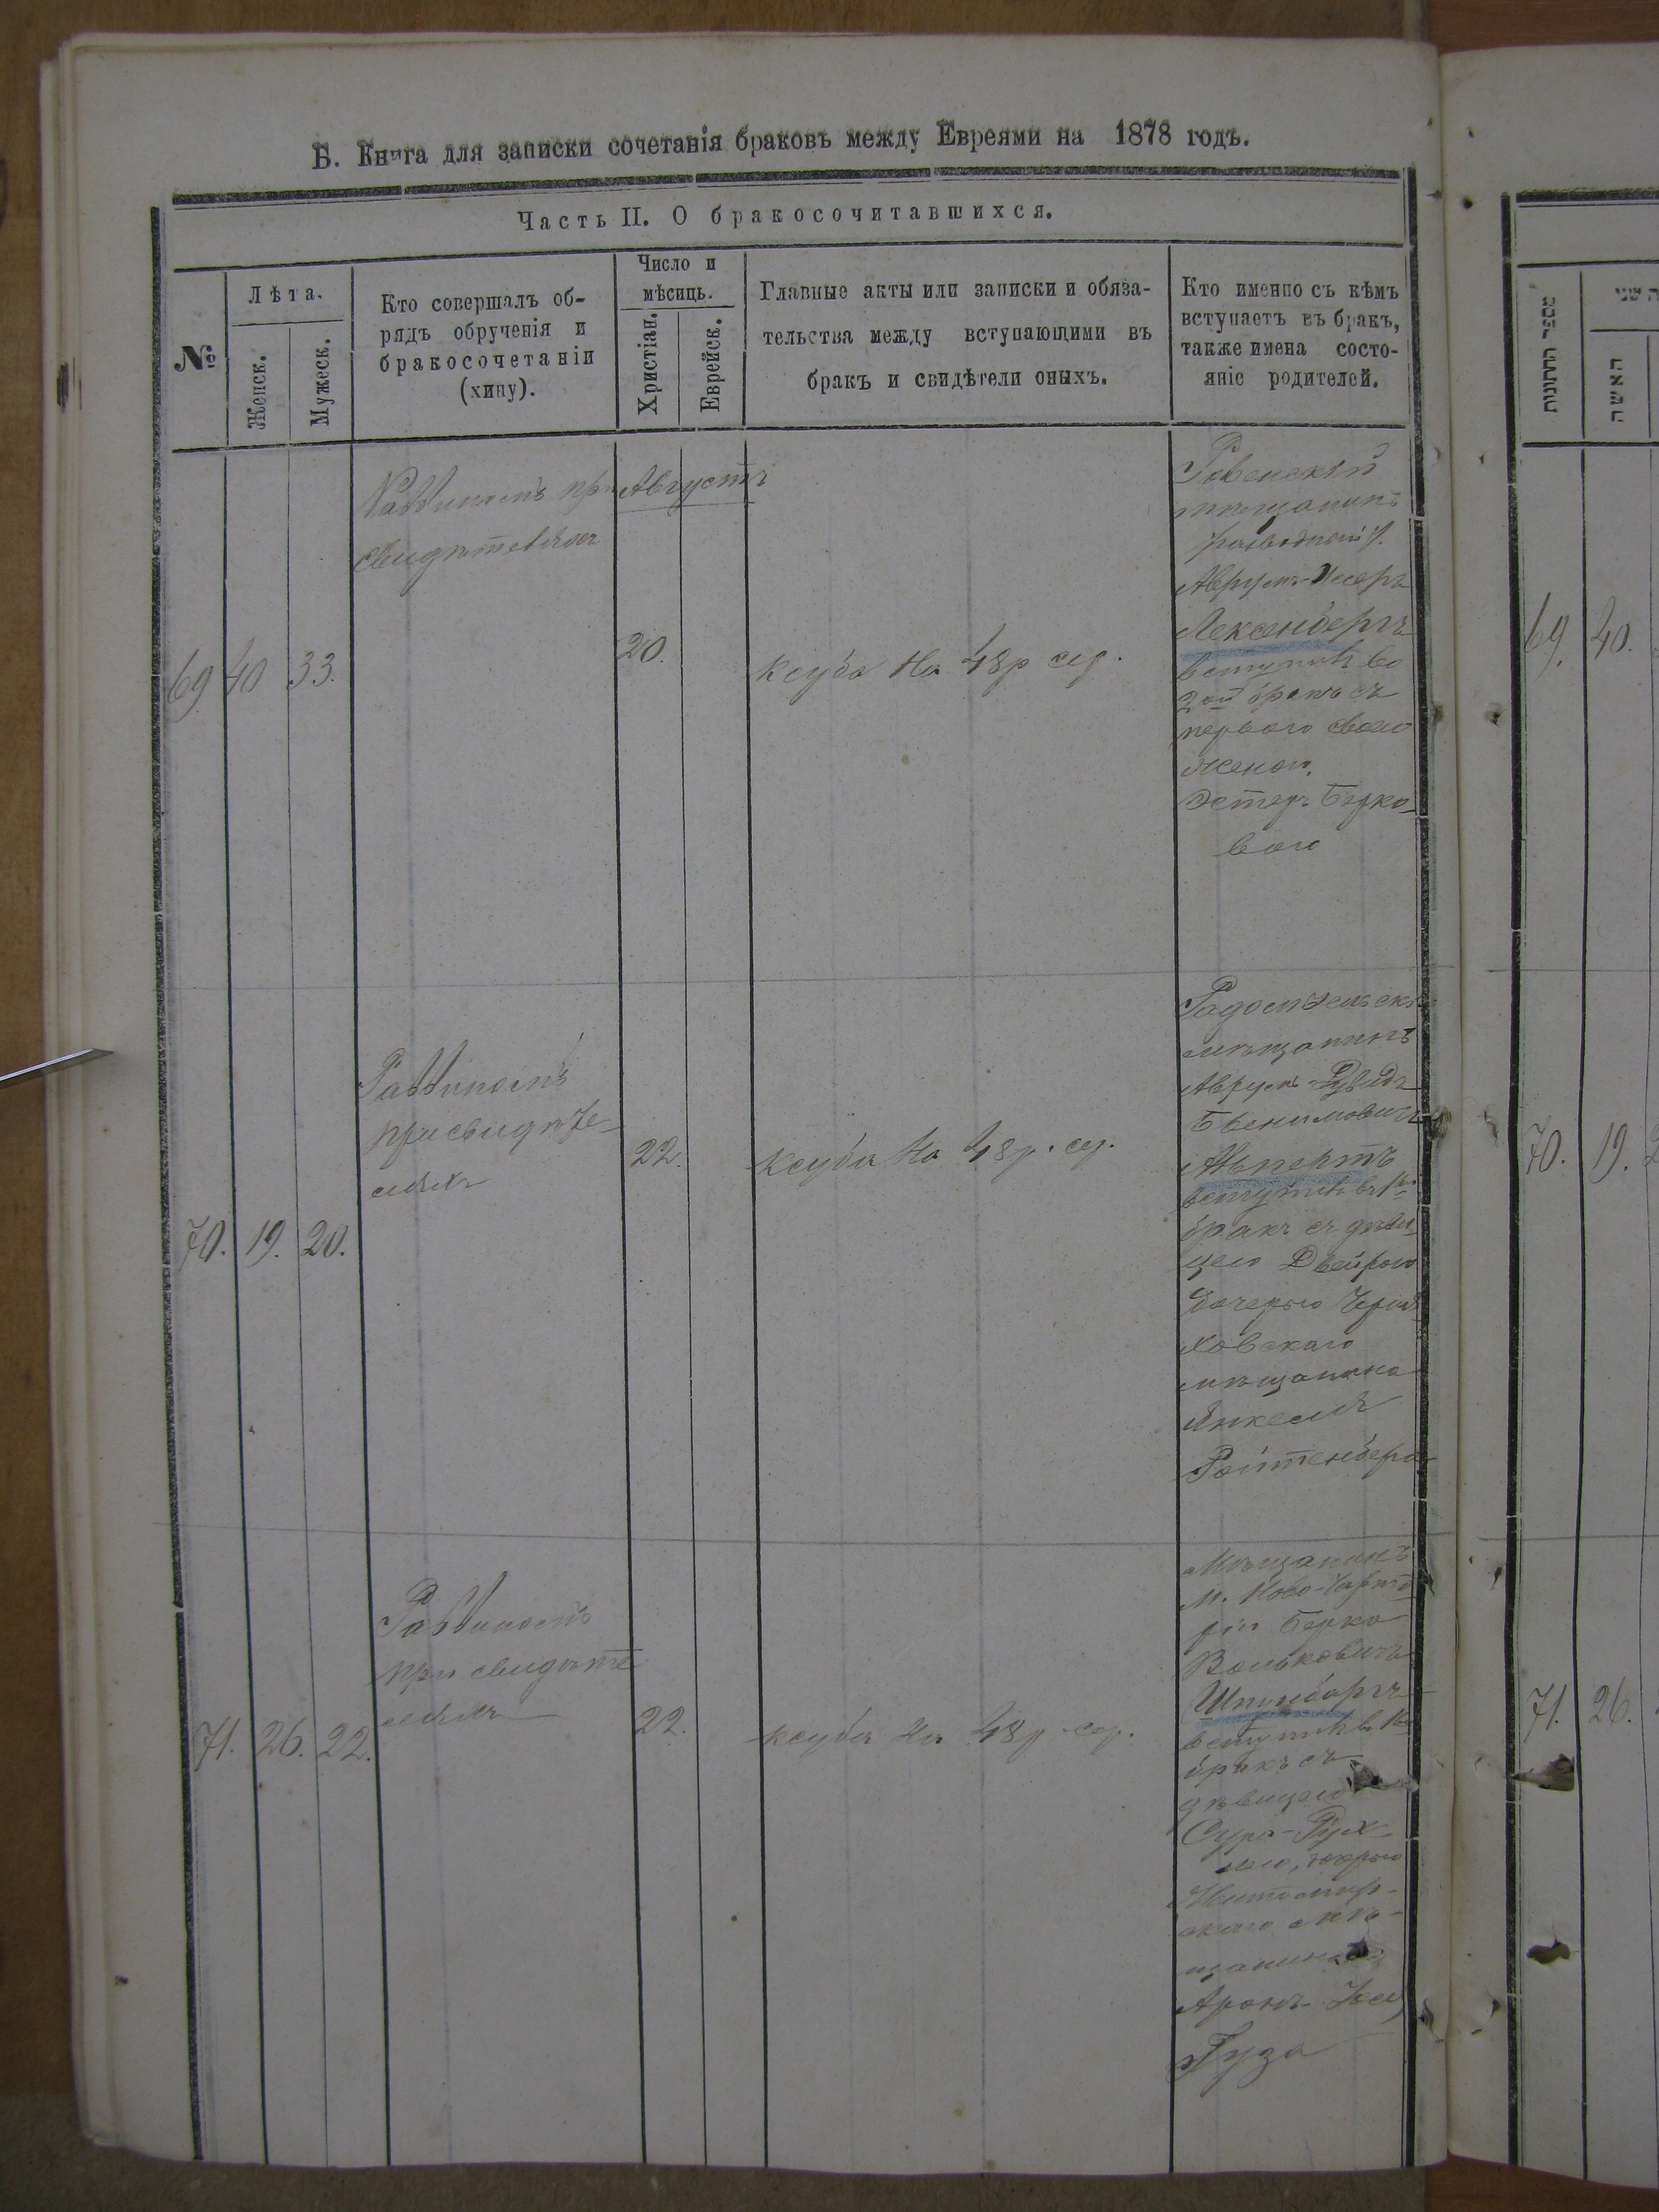 Б. Книга для записки сочетанія браковъ между Евреями на 1878 годъ.
Часть II. О бракосочитавшихся.
№
Лѣта.
Женск.
Мужеск.
Кто совершалъ об-
рядъ обрученія и
бракосочетаніи
(хипу).
Число и
мѣсяцъ.
Христіан.
Еврейск.
Главные акты или записки и обяза-
тельства между вступающими въ
бракъ и свидѣтели оныхъ.
Кто именно съ кѣмъ
вступаетъ въ бракъ,
также имена состо-
яніе родителей.
69 40 33.
Раввиномъ при
свидѣтеляхъ
Августъ
20.
ксуба на 48 р сер.
Ровенскій
мѣщанинъ
разводный
Аврумъ-
Лексенбергъ
вступилъ во
2ой бракъ съ
первого своею
женою
Эстеръ Берко-
вою
70. 19. 20.
Раввиномъ
при свидѣте-
ляхъ
22.
ксуба на 48 р. сер.
мѣщанинъ
Аврумъ-
Альпертъ
вступилъ въ 1й
бракъ съ дѣви-
цею Двейрою
дочерью Черня-
ховскаго
мѣщанина
Янкеля
Ройтенберга
71. 26. 22.
Раввиномъ
при свидѣте
ляхъ
22.
ксуба на 48 р. сер.
Мѣщанинъ
м. Ново-Чарто
ріи Берко
Вольковичъ
вступилъ въ 1й
бракъ съ
дѣвицею
Сура-Рух-
лею, дочерью
Житомир-
скаго мѣ-
щанина
Аронъ
Гуза
מספר החתונות
האשה
69. 40.
70. 19.
71. 26.